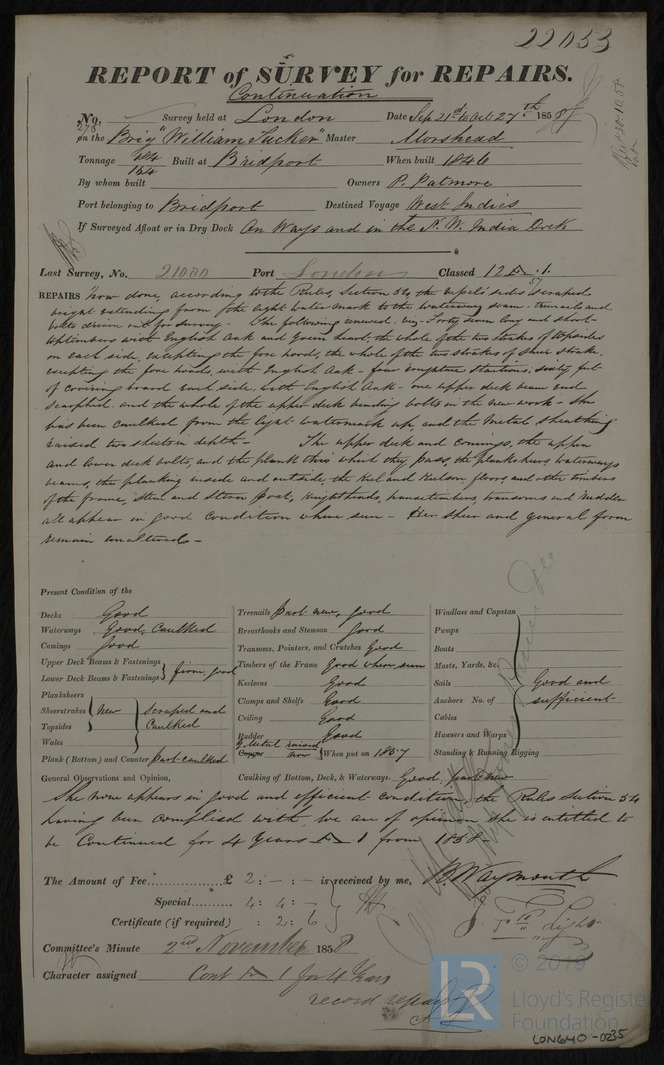 22053
REPORT of SURVEY for REPAIRS.
Continuation
No. 278 Survey held at London Date Sep 21st to Oct 27th 1858
on the Brig "William Tucker" Master Morshead
Tonnage 184 154 Built at Bridport When built 1846
By whom built Owners P. Patmore
Port belonging to Bridport Destined Voyage West Indies
If Surveyed Afloat or in Dry Dock On Ways and in the N. W. India Dock
Last Survey, No. 21080 Port London Classed 12 A . 1.
REPAIRS now done, according to the Rules, Section 54, the vessel's sides scraped
bright extending from the light water mark to the waterway seam - treenails and
bolts driven out for survey - The following renewed, viz - Forty seven long and short
toptimbers with English Oak and Green heart, the whole of the two strakes of topsides
on each side, excepting the fore hoods, the whole of the two strakes of Sheer strake,
excepting the fore hoods, with English Oak - four roughtree stantions, sixty feet
of covering board each side, with English Oak - one upper deck beam end
scarphed and the whole of the upper deck binding bolts in the new work - She
has been caulked from the light watermark up, and the Metal sheathing
raised two sheets in depth - The upper deck and comings, the upper
and lower deck bolts, and the plank thro' which they pass, the plansheers, waterways
beams, the planking inside and outside, the Keel and Kelson floors and other timbers
of the frame, Stem and Stern post, Knightheads, hawsetimbers, transoms and Rudder
all appear in good condition where seen - Her sheer and general form
remain unaltered -
Present Condition of the
Decks Good
Waterways Good, Caulked
Comings Good
Upper Deck Beams & Fastenings
Lower Deck Beams & Fastenings } firm, good
Planksheers
Sheerstrakes
Topsides
Wales
{ New } scraped and Caulked
Plank (Bottom) and Counter part caulked
Treenails part new, good
Breasthooks and Stemson Good
Transoms, Pointers, and Crutches Good
Timbers of the Frame Good where seen
Keelsons Good
Clamps and Shelfs Good
Ceiling Good
Rudder Good
Y. Metal raised now When put on 1857
Copper
Windlass and Capstan
Pumps
Boats
Masts, Yards, &c.
Sails
Anchors No. of
Cables
Hawsers and Warps
Standing & Running Rigging
Good and sufficient
General Observations and Opinion, Caulking of Bottom, Deck, & Waterways. Good, part new
She now appears in good and efficient condition, the Rules Section 54
having been complied with, we are of opinion she is entitled to
be Continued for 4 Years A 1 from 1858 -
The Amount of Fee............... £ 2 : - : - is received by me, B. Waymouth
Special.......... 4 : 4 : -
Certificate (if required) : 2 : 6
Committee's Minute 2nd November 1858
Character assigned Cont A 1 for 4 Years
record repairs
© 2019
Lloyd's Register
Foundation
LON640-0235